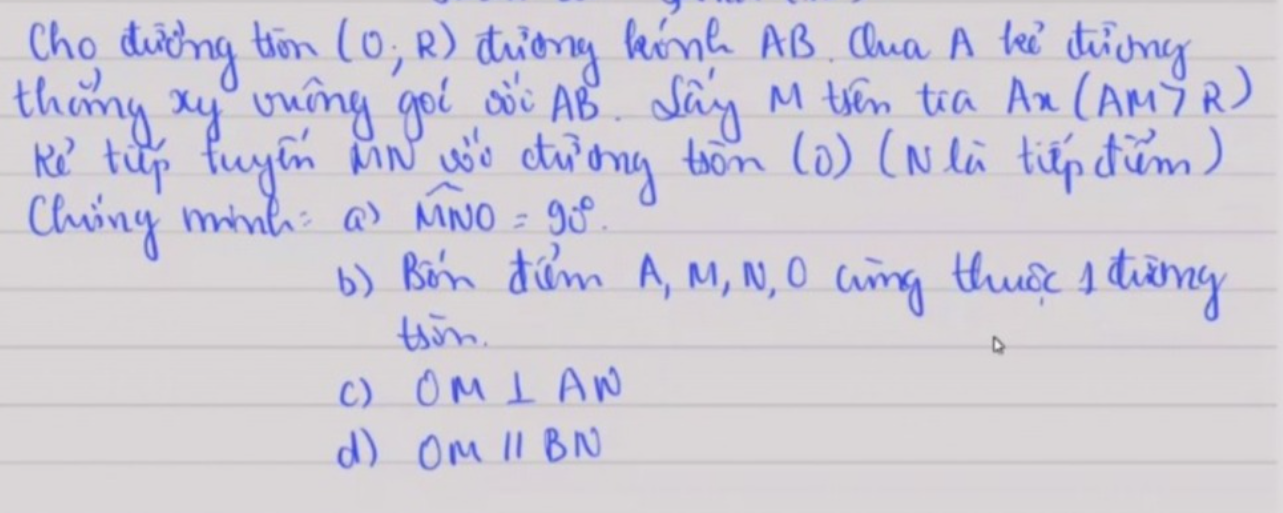 Cho đường tròn (O; R) đường kính AB. Qua A kẻ đường
thẳng xy vuông góc với AB. Lấy M trên tia Ax (AM > R)
Kẻ tiếp tuyến MN với đường tròn (O) (N là tiếp điểm)
Chứng minh: a) \widehat{MNO} = 90°.
b) Bốn điểm A, M, N, O cùng thuộc 1 đường
tròn.
c) OM ⊥ AN
d) OM // BN